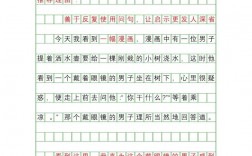 善于反复使用问句，让启示更发人深省
今天我看到一幅漫画，漫画中有一位男子
提着洒水壶要给一棵小树浇水，这时他
看到一个戴着眼镜的男子坐在树下，心里很疑
惑，便走上前去问他：“你干什么？”“等着乘
凉。”那个戴眼镜的男子理所当然地回答道。